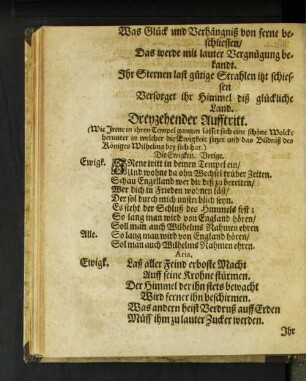 Was Glück und Verhängniß von ferne be-
schliessen/
Das werde mit lauter Vergnügung be-
kandt.
Ihr Sternen last gütige Strahlen itzt schies-
sen
Versorget ihr Himmel diß glückliche
Land.
Dreyzehender Aufftritt.
(Wie Irene in ihren Tempel gangen lasset sich eine schöne Wolcke
herunter in welcher die Ewigkeit sitzet und das Bildniß des
Königes Wilhelms bey sich hat.)
Die Ewigkeit. Vorige.
Ewigk. IRene tritt in deinen Tempel ein/
Und wohne da ohn Wechsel trüber Zeiten.
Schau Engelland wer dir diß zu bereiten/
Wer dich in Frieden wohnen läst/
Der sol durch mich unsterblich seyn.
Es steht der Schluß des Himmels fest:
So lang man wird von England hören/
Soll man auch Wilhelms Nahmen ehren
Alle. So lang man wird von England hören/
Sol man auch Wilhelms Nahmen ehren.
Aria.
Ewigk. Laß aller Feind erboste Macht
Auff seine Krohne stürmen.
Der Himmel der ihn stets bewacht
Wird ferner ihn beschirmen.
Was andern heist Verdruß auff Erden
Müss ihm zu lauter Zucker werden.
Ihr